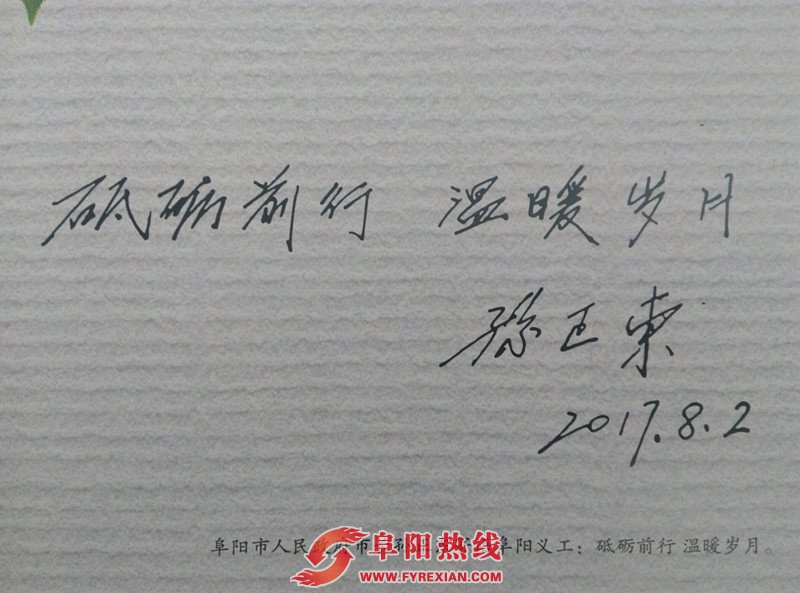 砥砺前行 温暖岁月
孙正东
2017.8.2
阜阳市人民政府市长孙正东 阜阳义工：砥砺前行 温暖岁月。
阜阳热线
WWW.FYREXIAN.COM